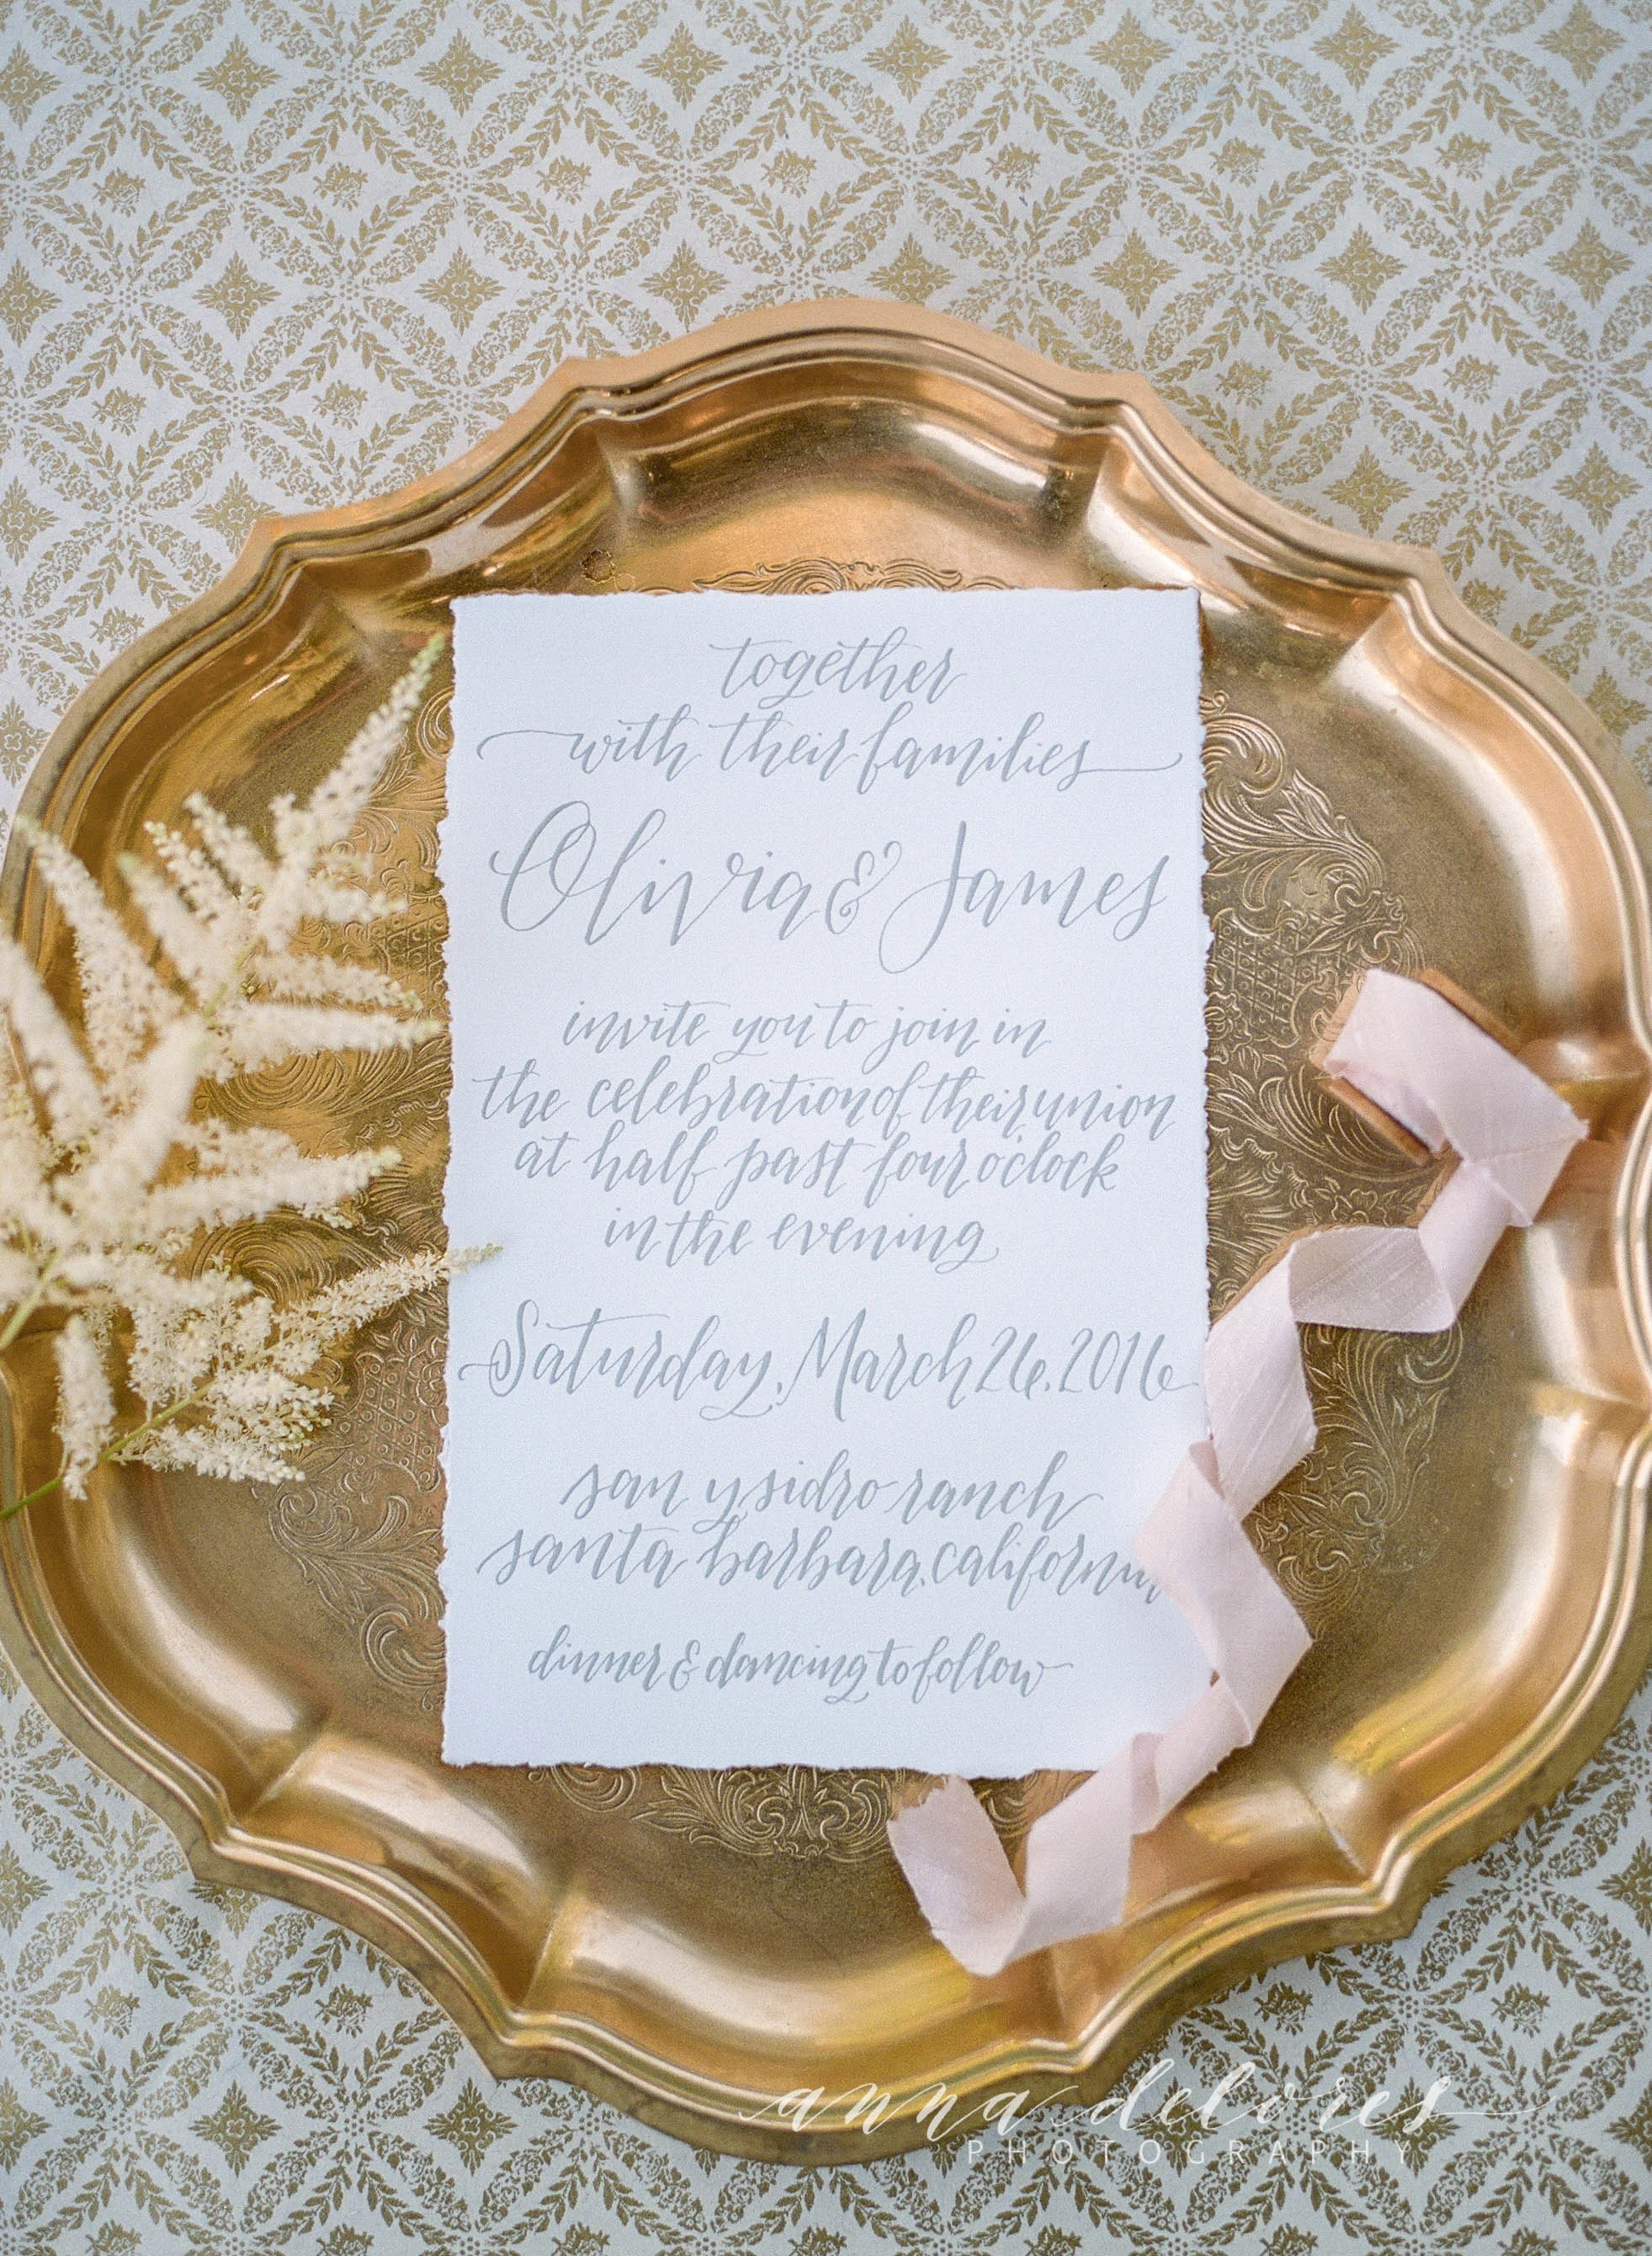 together
with their families
Olivia & James
invite you to join in
the celebration of their union
at half past four o'clock
in the evening
Saturday, March 26, 2016
san ysidro ranch
santa barbara, california
dinner & dancing to follow
anna delores
PHOTOGRAPHY